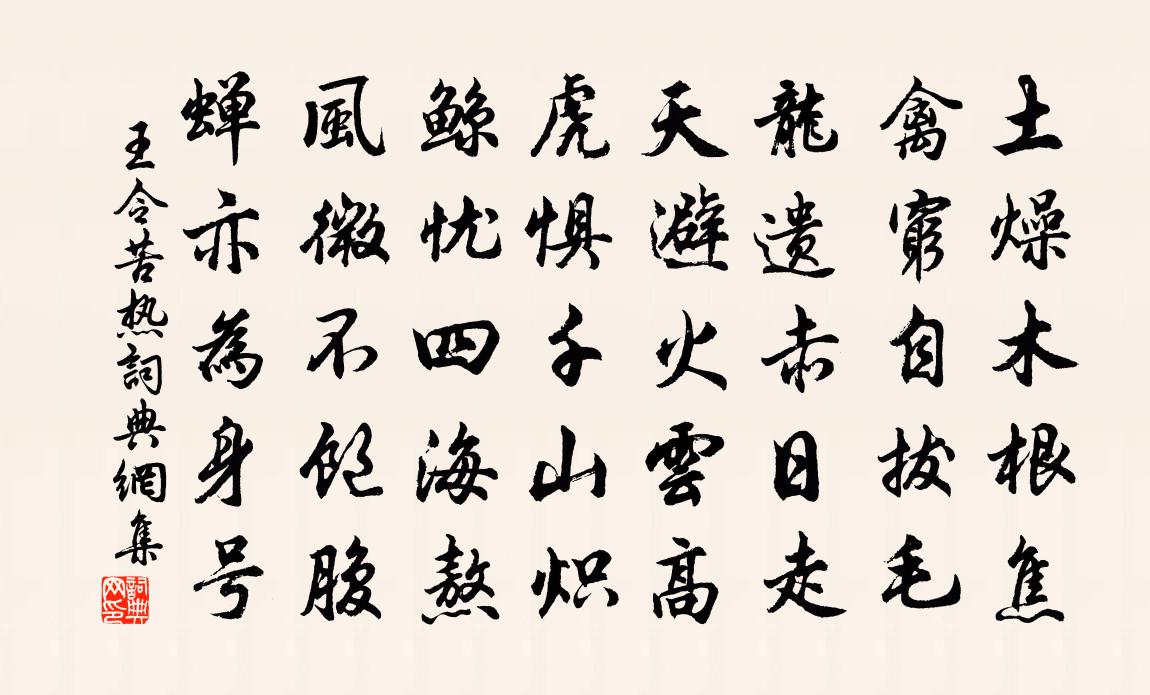 土燥木根焦
禽穷自拔毛
龍遗赤日走
天避火雲高
虎惧千山炽
鲸忧四海熬
風微不饱腹
蝉亦為身号
王令苦热詞典網集
詞典网印